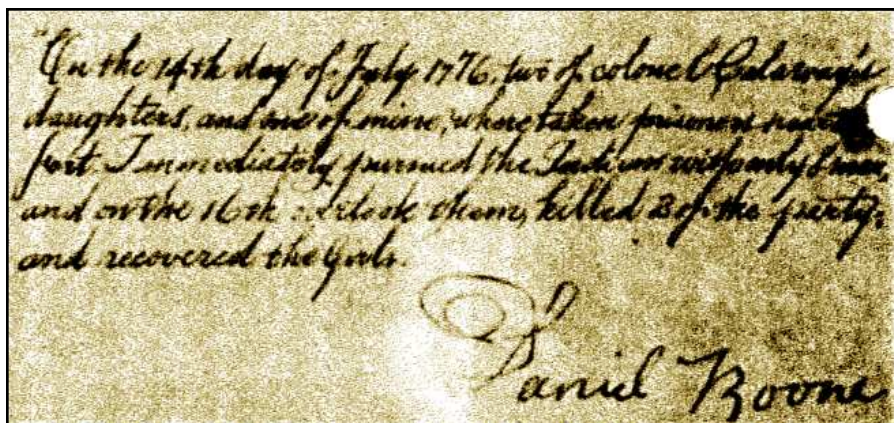 "On the 14th day of July 1776, two of colonel Calaway's
daughters, and one of mine, where taken prisoners near
fort. I immediately pursued the Indians with only 8 men,
and on the 16th overtook them, killed 2 of the party,
and recovered the Girls.
Daniel Boone